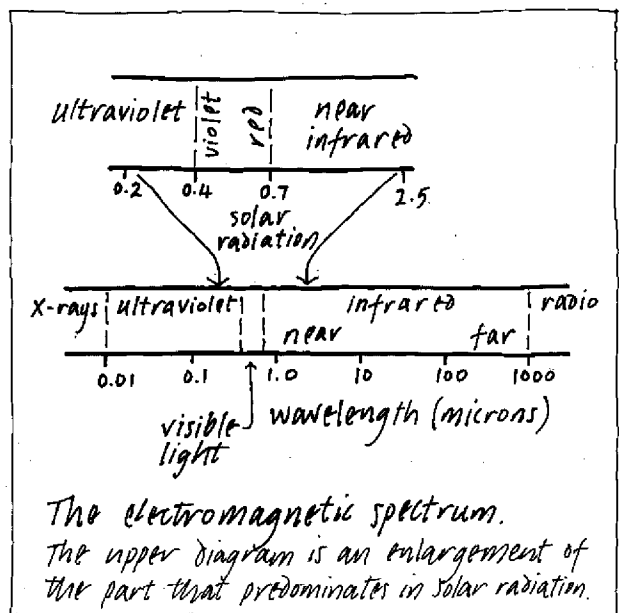 ultraviolet violet red near infrared
0.2 0.4 0.7 2.5
solar
radiation
X-rays ultraviolet infrared radio
near far
0.01 0.1 1.0 10 100 1000
visible
light
wavelength (microns)
The electromagnetic spectrum.
The upper diagram is an enlargement of
the part that predominates in solar radiation.